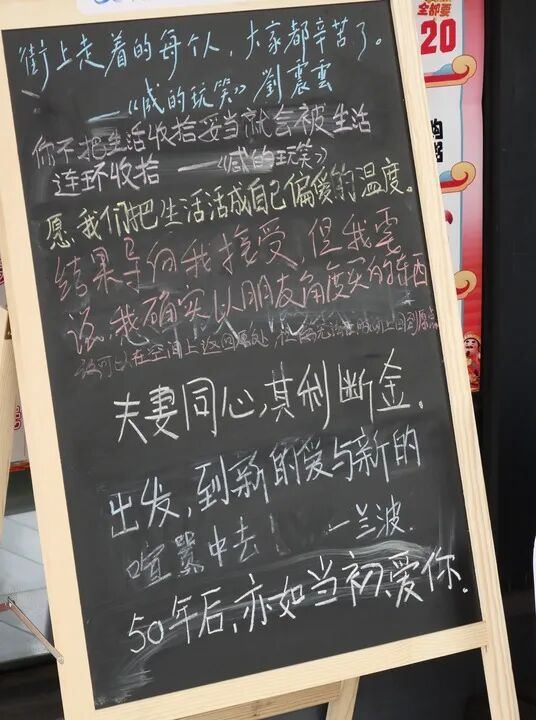 全都要
20
街上走着的每个人，大家都辛苦了。
—《咸的玩笑》劉震雲
你不把生活收拾妥当就会被生活
连环收拾 —《咸的玩笑》
愿我们把生活活成自己偏爱的温度。
结果导向我接受，但我需
说，我确实以朋友角度买的东西
你可以在空间上返回原处，但 无法在时间上回到原点
夫妻同心，其利断金。
出发，到新的爱与新的
喧嚣中去！ —兰波.
50年后，亦如当初，爱你.